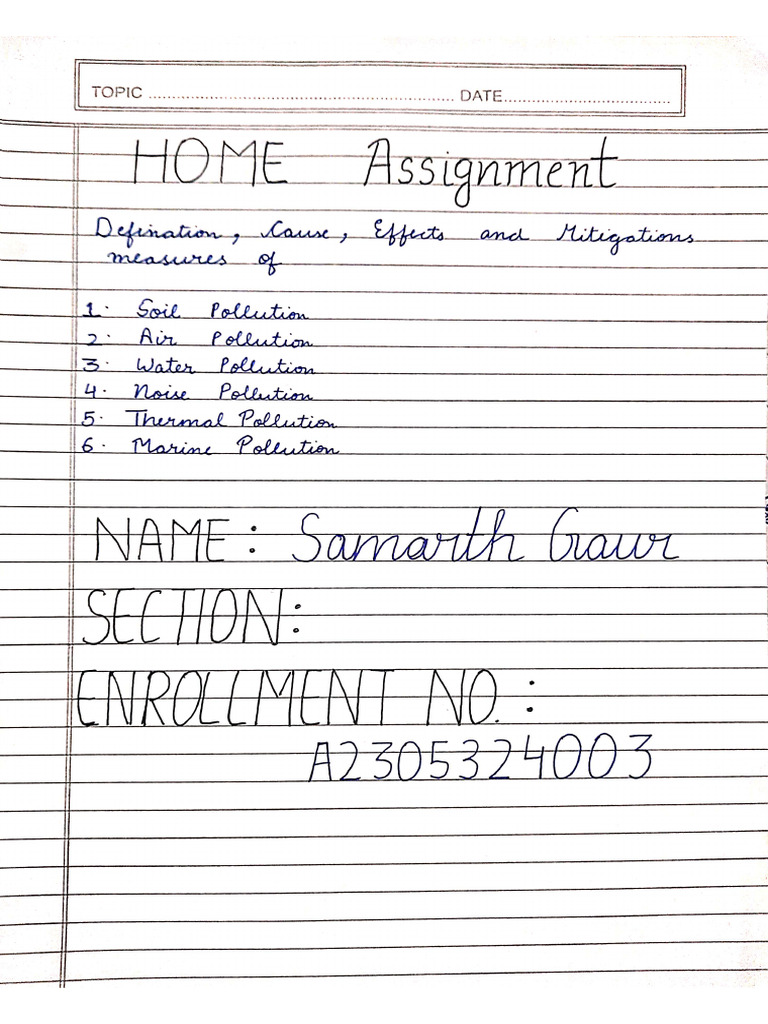 TOPIC ........................................................................ DATE.......................................
HOME Assignment
Defination, Cause, Effects and Mitigations
measures of
1. Soil Pollution
2. Air Pollution
3. Water Pollution
4. Noise Pollution
5. Thermal Pollution
6. Marine Pollution
NAME: Samarth Gaur
SECTION:
ENROLLMENT NO. :
A2305324003